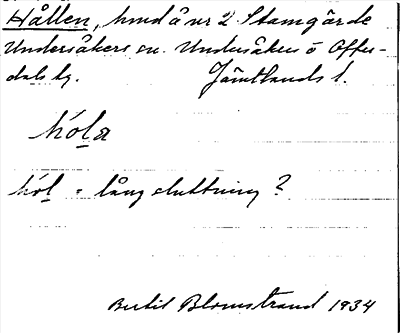 Hållen, hmd å nr 2 Stamgärde
Undersåkers sn. Undersåkers o Offer-
dals tg. Jämtlands l.
hóla
hól = lång sluttning?
Bertil Blomstrand 1934